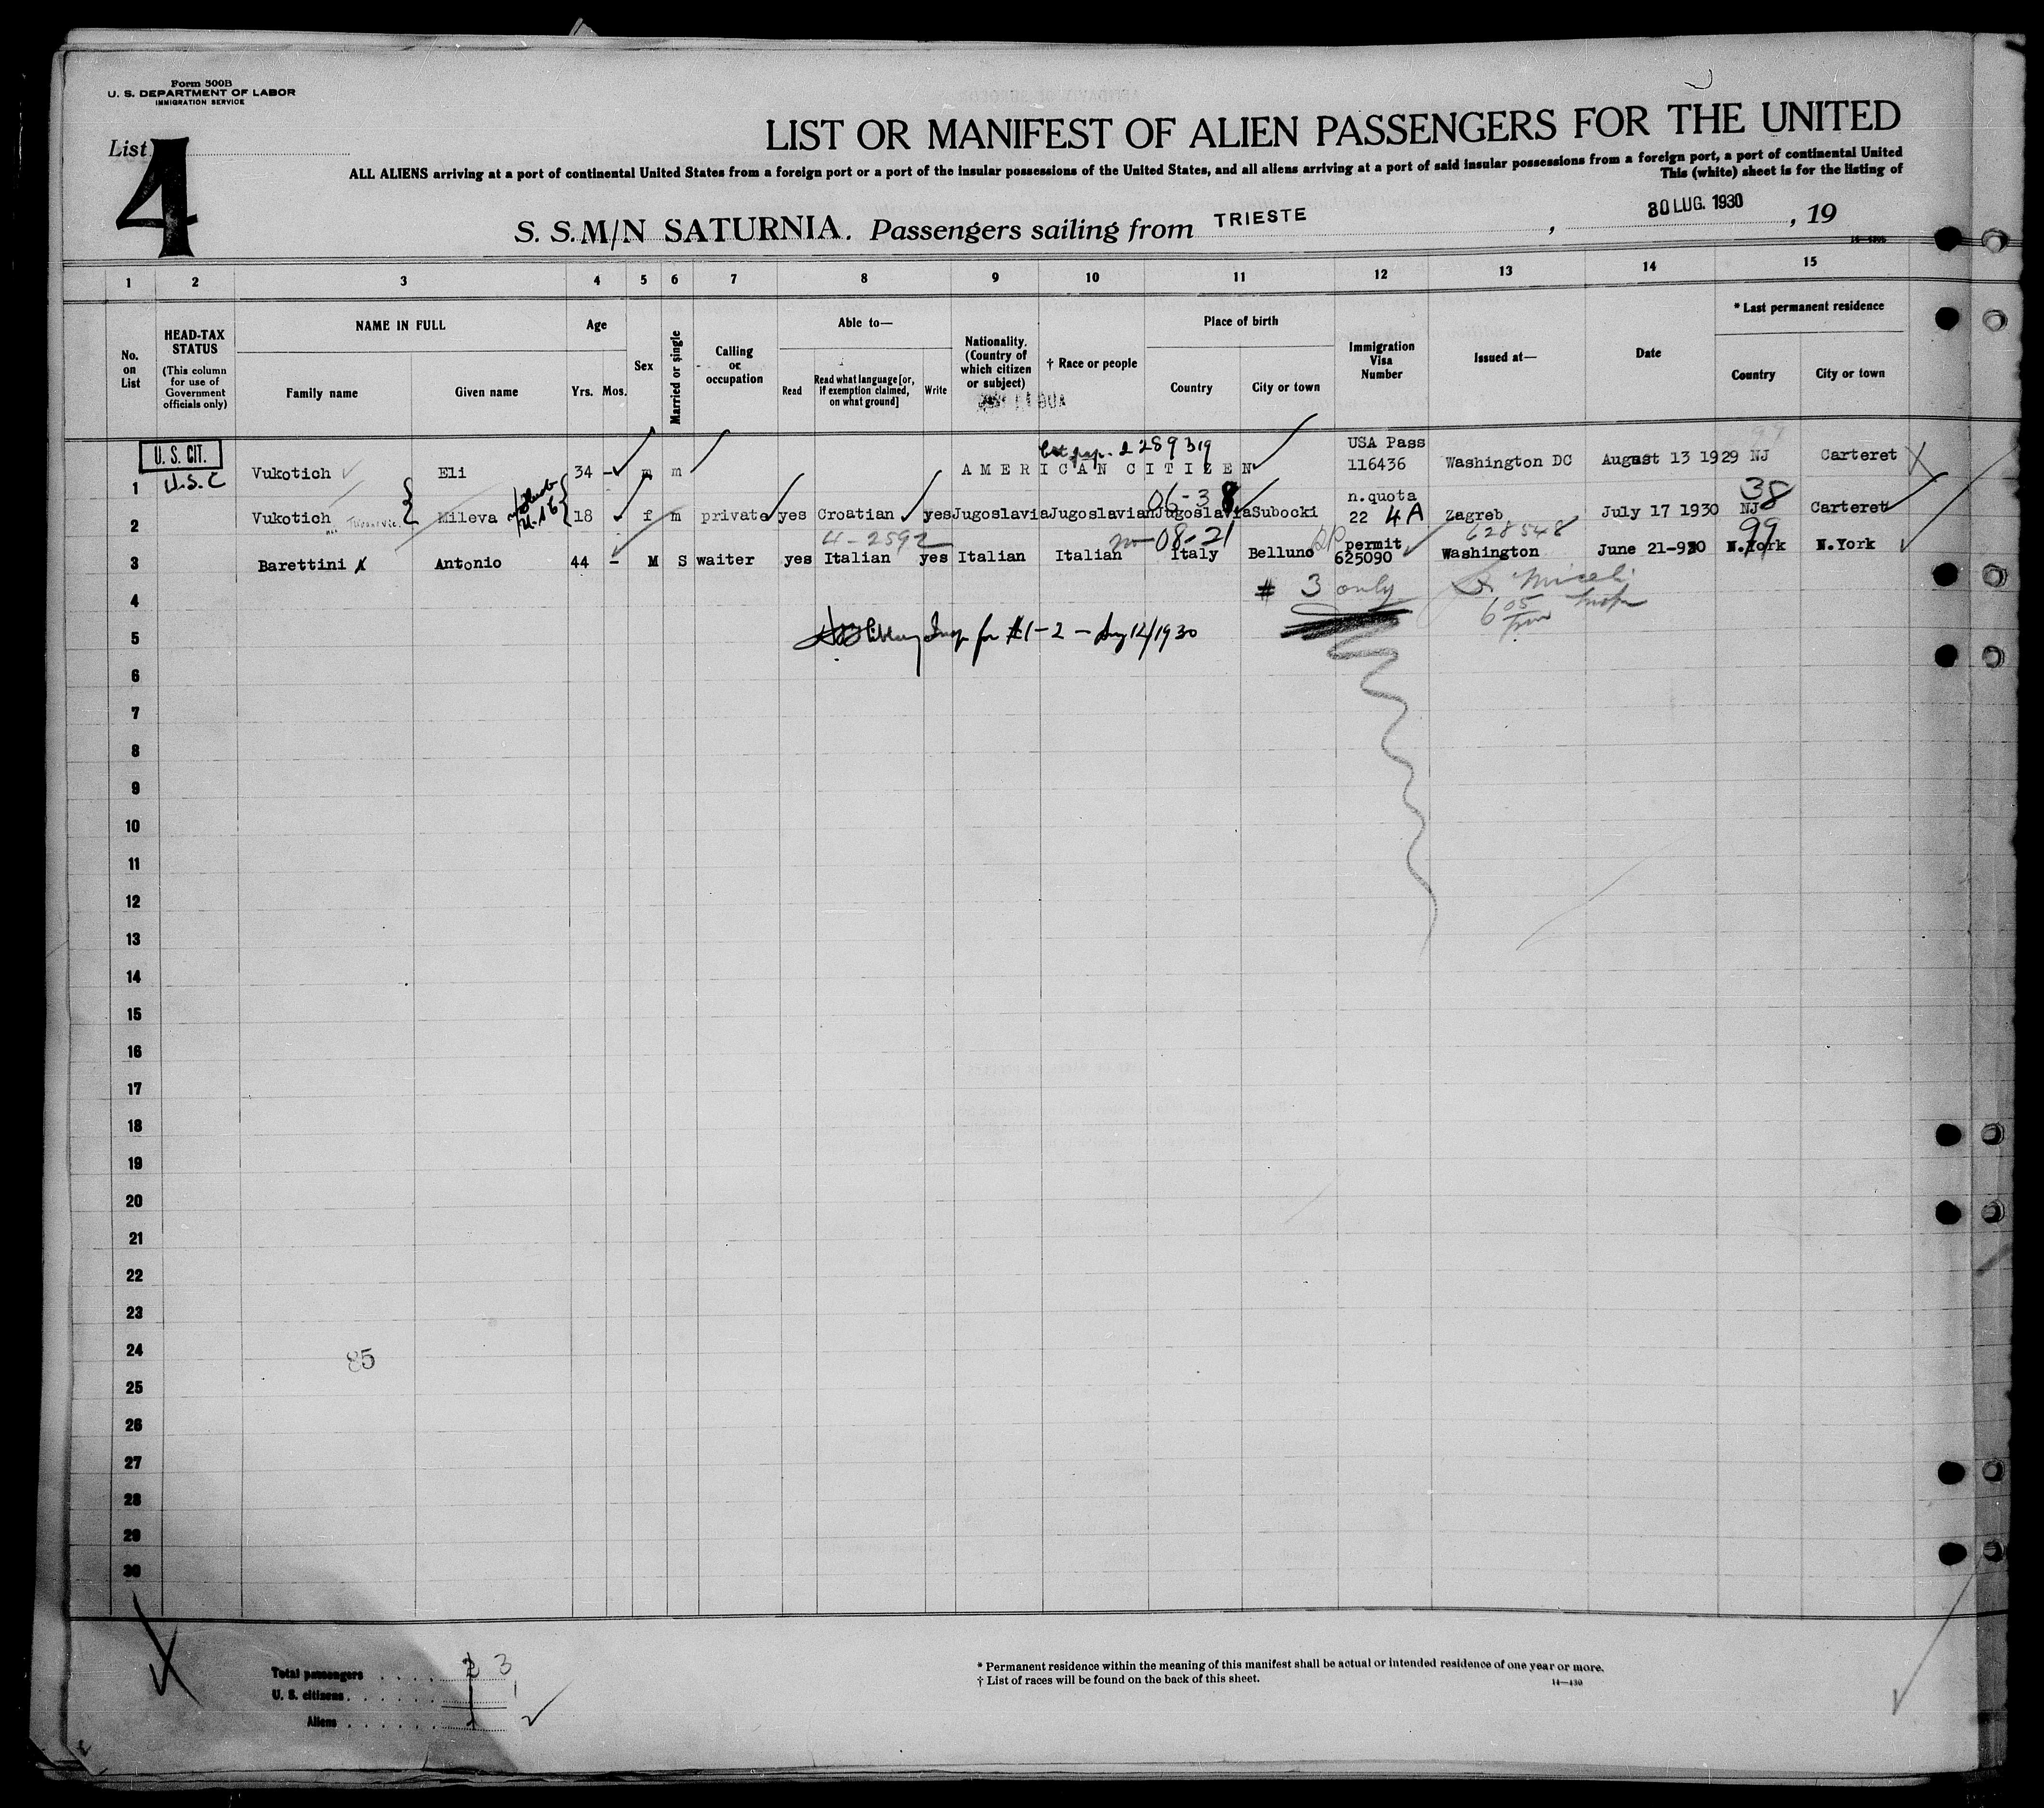 Form 500B
U. S. DEPARTMENT OF LABOR
IMMIGRATION SERVICE
List
4
LIST OR MANIFEST OF ALIEN PASSENGERS FOR THE UNITED
ALL ALIENS arriving at a port of continental United States from a foreign port or a port of the insular possessions of the United States, and all aliens arriving at a port of said insular possessions from a foreign port, a port of continental United
This (white) sheet is for the listing of
S. S. M/N SATURNIA. Passengers sailing from TRIESTE , 30 LUG. 1930 , 19
1 2 3 4 5 6 7 8 9 10 11 12 13 14 15
No. on List
HEAD-TAX STATUS
(This column for use of Government officials only)
NAME IN FULL
Family name
Given name
Age
Yrs. Mos.
Sex
Married or single
Calling or occupation
Able to—
Read
Read what language [or, if exemption claimed, on what ground]
Write
Nationality. (Country of which citizen or subject)
† Race or people
Place of birth
Country
City or town
Immigration Visa Number
Issued at—
Date
* Last permanent residence
Country
City or town
U. S. CIT.
U.S.C
2289319
1 Vukotich Eli 34 - m m AMERICAN CITIZEN USA Pass 116436 Washington DC August 13 1929 NJ Carteret
06-38
38
2 Vukotich Mileva 18 f m private yes Croatian yes Jugoslavia Jugoslavian Jugoslavia Subocki n.quota 22 4A Zagreb July 17 1930 NJ Carteret
4-2592
08-21
628548
99
3 Barettini Antonio 44 - M S waiter yes Italian yes Italian Italian Italy Belluno permit 625090 Washington June 21-930 N.York N.York
4
# 3 only
5
for #1-2 - Aug 12/1930
6
7
8
9
10
11
12
13
14
15
16
17
18
19
20
21
22
23
24
85
25
26
27
28
29
30
Total passengers . . . . 3
U. S. citizens . . . . . 1
Aliens . . . . . . 2
* Permanent residence within the meaning of this manifest shall be actual or intended residence of one year or more.
† List of races will be found on the back of this sheet.
14—430